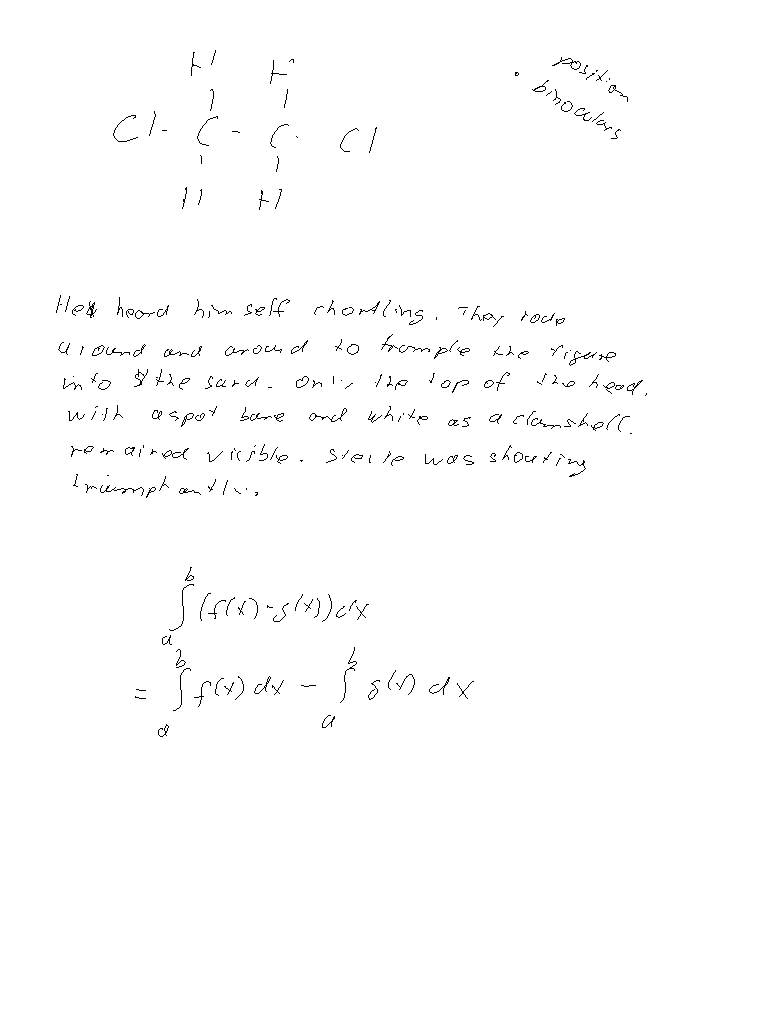 H H
Cl - C - C - Cl
H H
• position
binoculars
He heard himself chortling. They rode
around and around to trample the figure
into the sand. Only the top of the head,
with a spot bare and white as a clamshell,
remained visible. Stevie was shouting
triumphantly.
∫_a^b (f(x) - g(x)) dx
= ∫_a^b f(x) dx - ∫_a^b g(x) dx